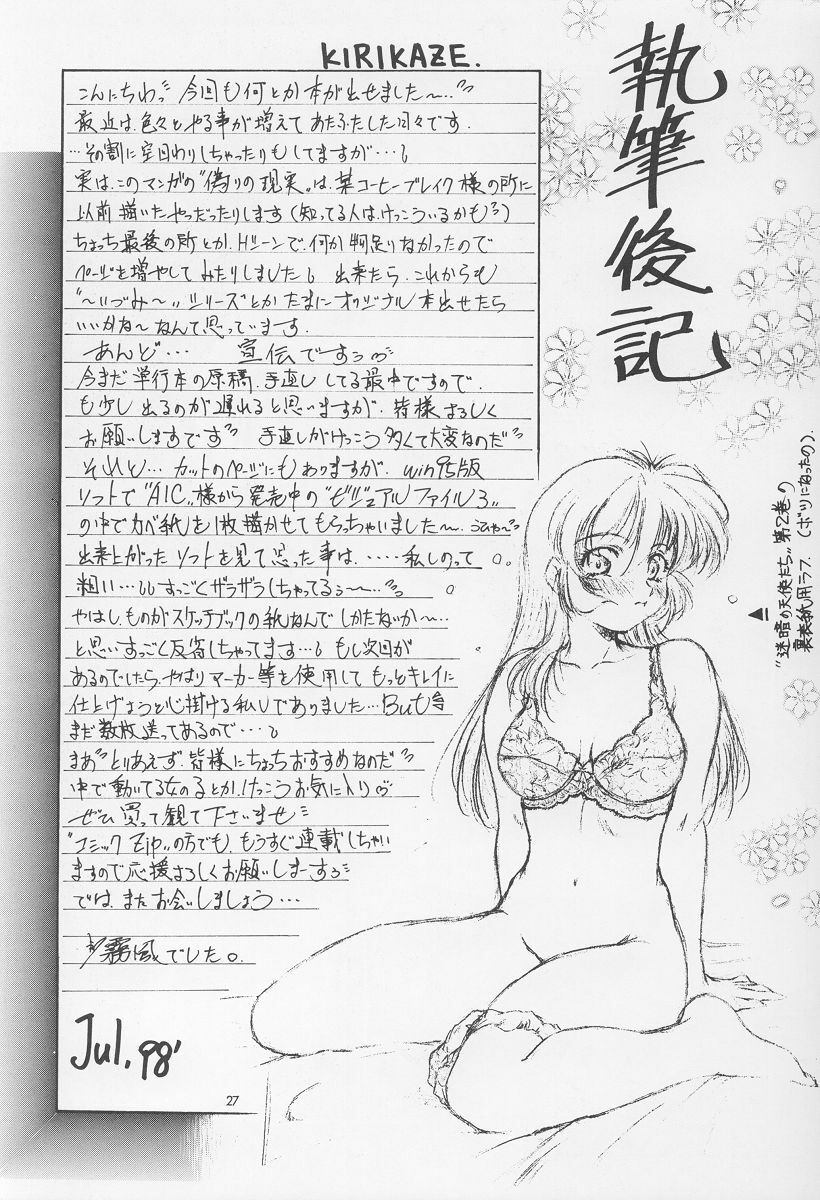 KIRIKAZE.
執筆後記
こんにちわっ 今回も何とか本が出せました〜…
最近は、色々とやる事が増えてあたふたした日々です。
…その割に空回りしちゃったりもしてますが…
実は、このマンガの"偽りの現実"は、某コーヒーブレイク様の所に
以前描いたやつだったりします(知ってる人は、けっこういるかも)
ちょっち最後の所とか、Hシーンで、何か物足りなかったので
ページを増やしてみたりしました。出来たら、これからも
"〜いづみ〜"シリーズとかたまにオリジナル本出せたら
いいかな〜なんて思っています。
あんど… 宣伝ですぅ
今まだ単行本の原稿、手直ししてる最中ですので、
も少し出るのが遅れると思いますが、皆様よろしく
お願いしますです 手直しがけっこう多くて大変なのだ
それと… カットのページにもありますが、win95版
ソフトで"AIC"様から発売中の"ビジュアルファイル3"
の中でカベ紙を1枚描かせてもらっちゃいました〜. うひゃ〜
出来上がったソフトを見て思った事は、……私しのって
粗い… すっごくザラザラしちゃってるぅ〜…
やはし、ものがスケッチブックの紙なんでしかたないか〜…
と思いすっごく反省しちゃってます…もし次回が
あるのでしたら、やはりマーカー等を使用してもっとキレイに
仕上げようと心掛ける私しでありました…But
まだ数枚送ってあるので…
まあ とりあえず、皆様にちょっちおすすめなのだ
中で動いてる女のるとか、けっこうお気に入り
ぜひ買って観て下さいませ
"コミックZip"の方でも、もうすぐ連載しちゃい
ますので応援よろしくお願いしまーすぅ
では、またお会いしましょう…
霧風でした。
Jul. 98'
"迷暗の天使たち"第2巻の
裏表紙用ラフ. (ボツになったの).
27